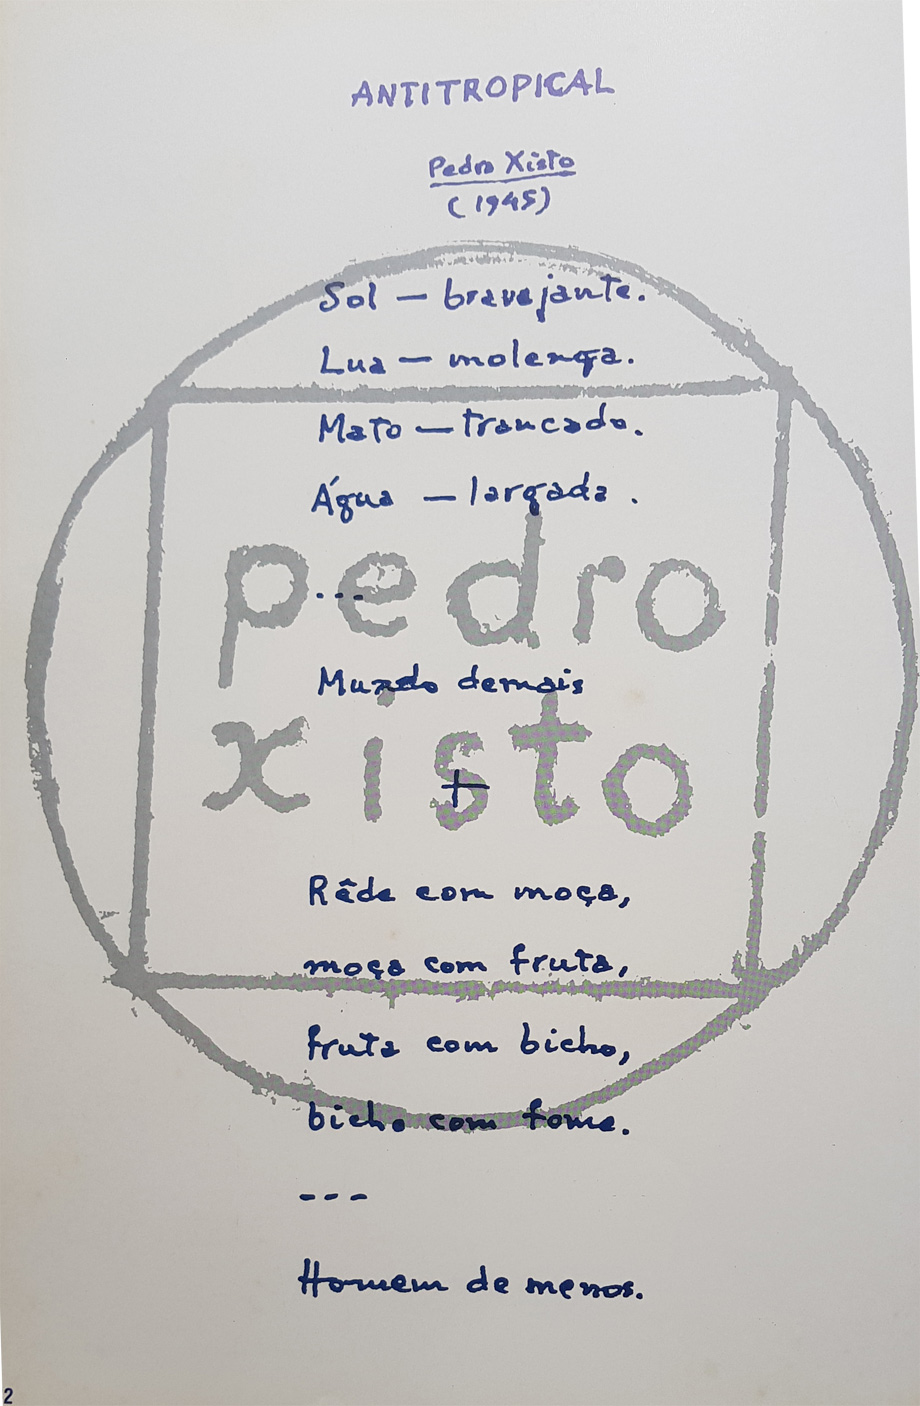 ANTITROPICAL
Pedro Xisto
(1945)
Sol — bravejante.
Lua — molenga.
Mato — trancado.
Água — largada.
pedro
...
Mundo demais
xisto
+
Rêde com moça,
moça com fruta,
fruta com bicho,
bicho com fome.
---
Homem de menos.
2